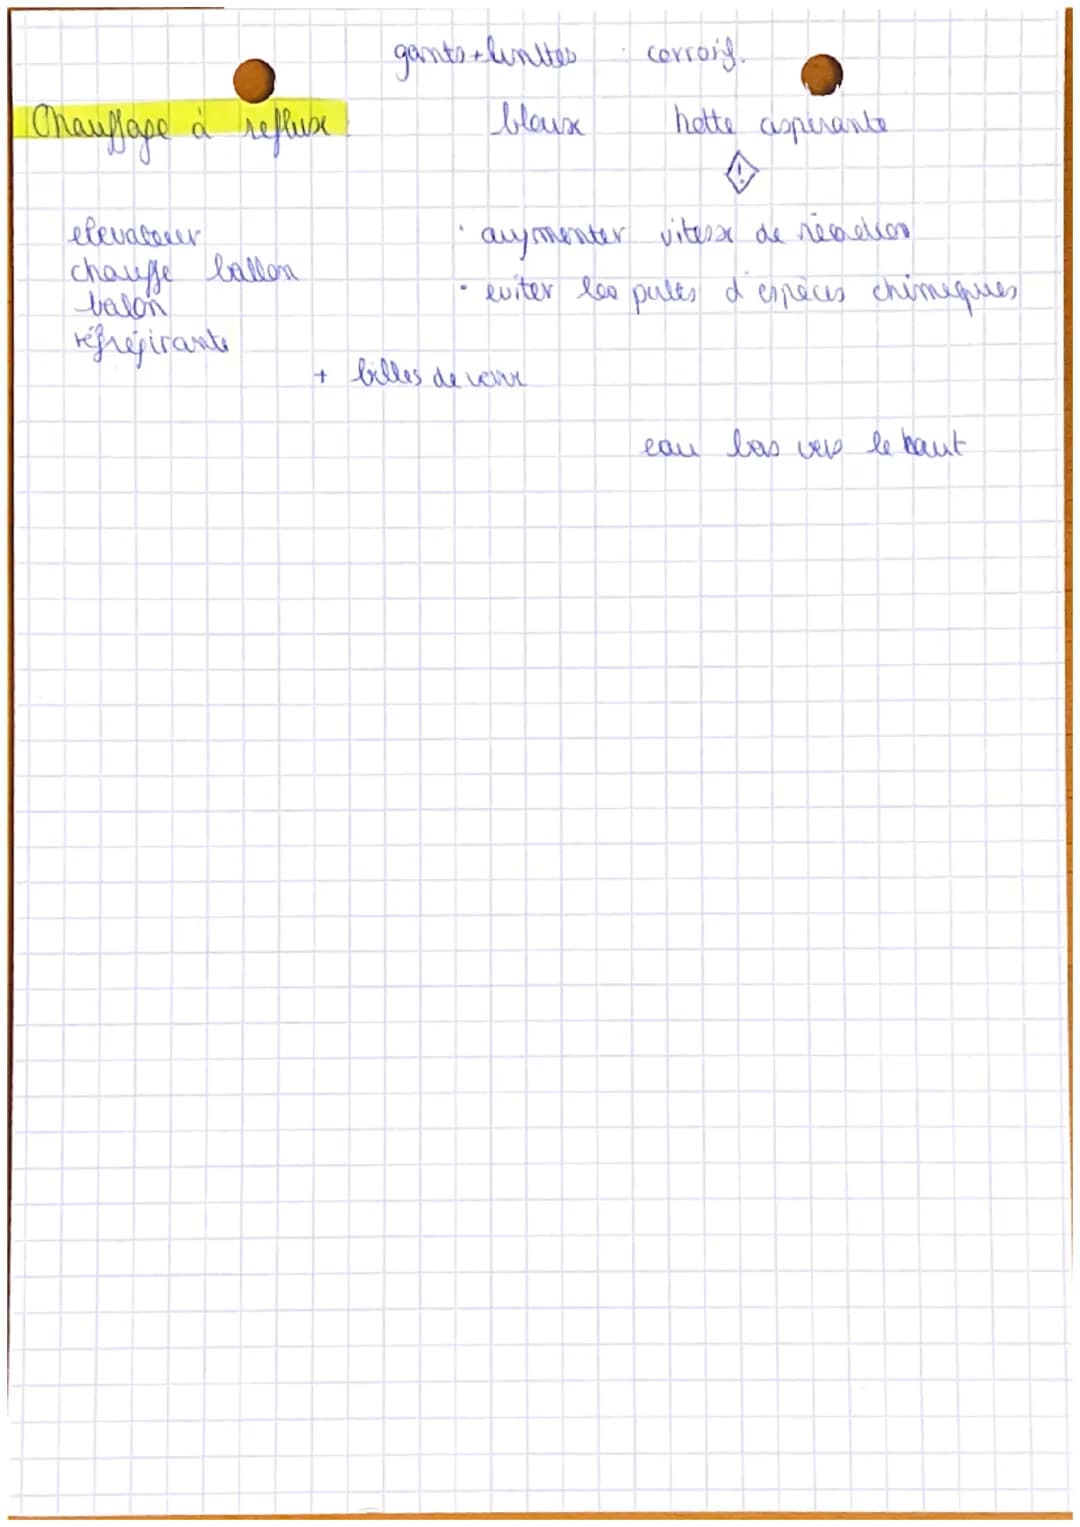 gants + lunettes corrosif.
Chauffage à reflux blouse hotte aspirante
!
elevateur · augmenter vitesse de réaction
chauffe ballon
· eviter les pertes d'espèces chimiques
balon
réfrégirante
+ billes de verre
eau bas vers le haut